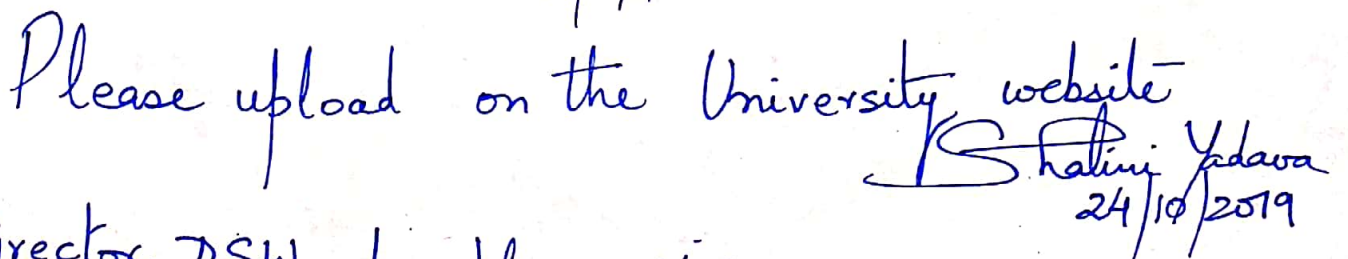 Please upload on the University website
Shalini Yadava
24/10/2019
rector DSW